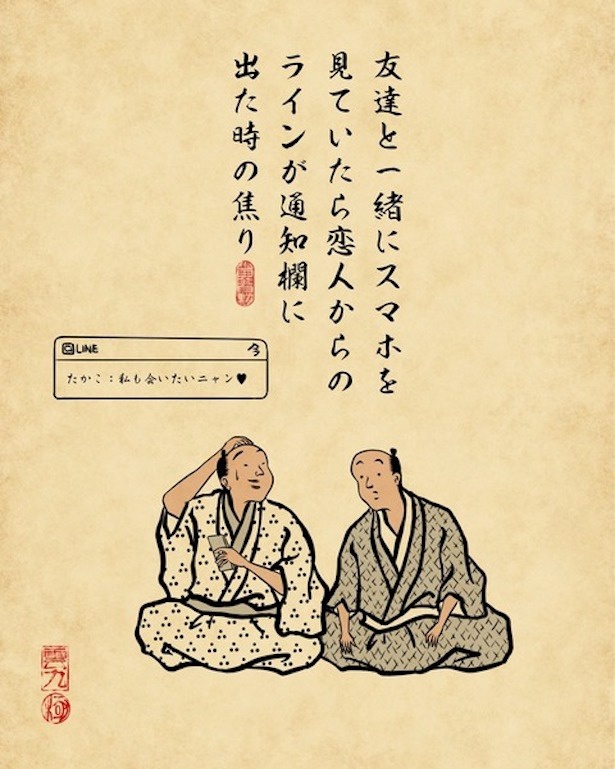 友達と一緒にスマホを
見ていたら恋人からの
ラインが通知欄に
出た時の焦り
LINE 今
たかこ：私も会いたいニャン♥